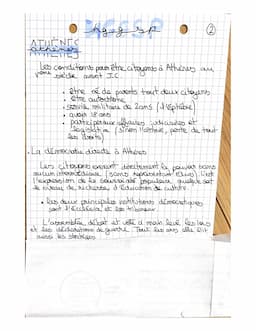 HGGSP
②
ATHÈNES
athènes
Les conditions pour être citoyens à Athènes au
Vème siècle avant J.C
• être né de parents tout deux citoyens
• être autochtone
• service militaire de 2ans (l'éphébie)
• avoir 18 ans
• participer aux affaires judiciaires et
législatives (sinon l'atimie, perte de tout
les droits)
• La démocratie directe à Athènes
Les citoyens exercent directement le pouvoir sans
aucun intermédiaire (sans représentant élus), c'est
l'expression de la souveraineté populaire quelque soit
le niveau de richesse, d'éducation de culture.
• les deux principales institutions démocratiques
sont l'Ecclésia et les tribunaux
L'assemblée débat et vote à main levé les lois
et les déclarations de guerre. Tout les ans elle élit
aussi les stratèges